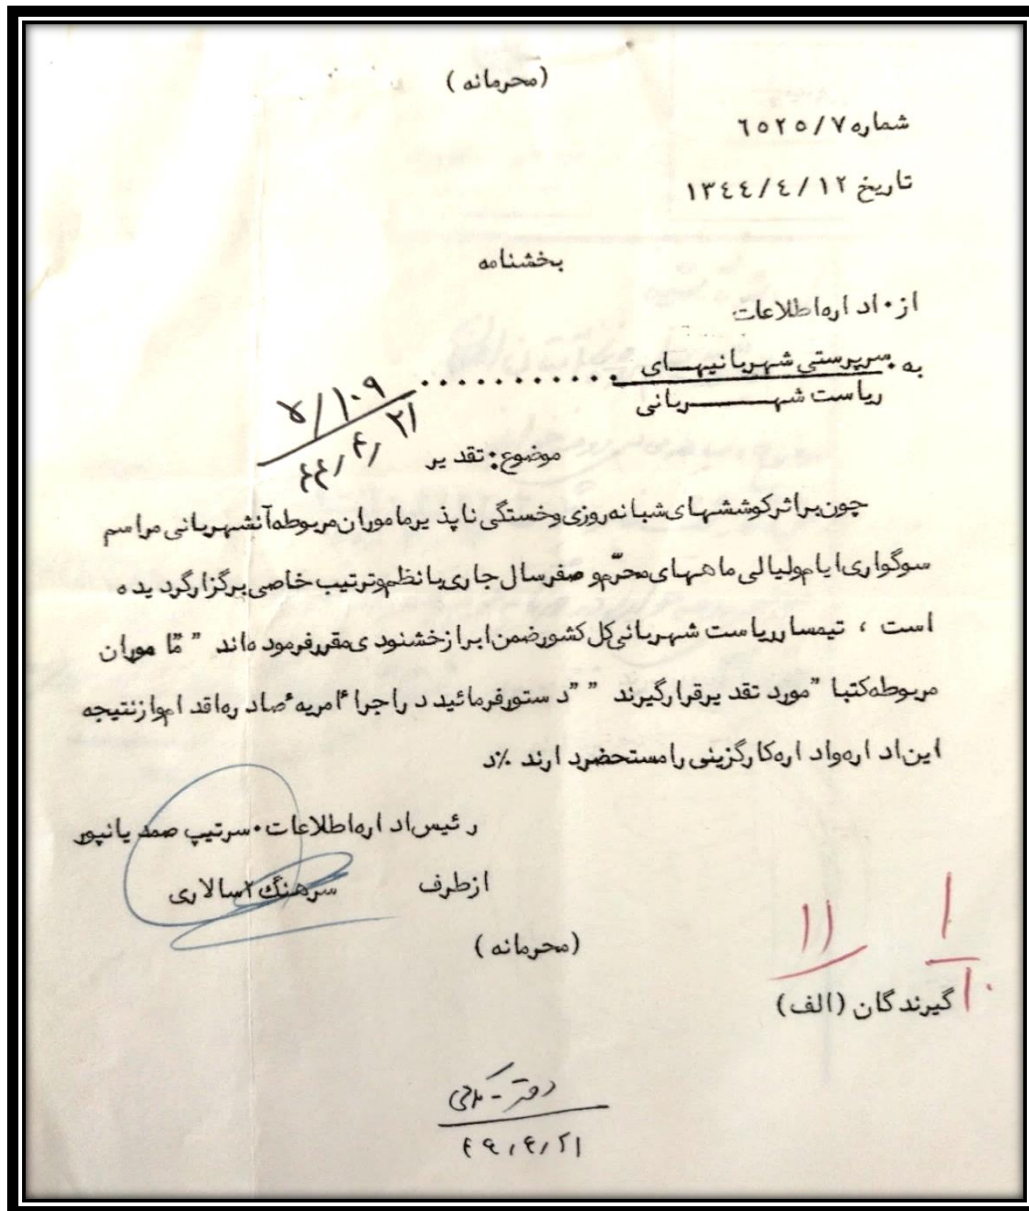 (محرمانه)
شماره ٦٥٢٥/٧
تاریخ ١٣٤٤/٤/١٢
بخشنامه
از۰ اداره اطلاعات
به ۰ سرپرستی شهربانیهــای ............
ریاست شهـــــــربانی
۵/۱۰۹
۴۴/۴/۲۱
موضوع: تقدیر
چون براثر کوششهای شبانه روزی وخستگی ناپذیر ماموران مربوطه آنشهربانی مراسم
سوگواری ایام ولیالی ماههای محرّم و صفر سال جاری با نظم وترتیب خاصی برگزار گردیده
است ، تیمسار ریاست شهربانی کل کشور ضمن ابراز خشنودی مقرر فرموده اند " مّا موران
مربوطه کتبا " مورد تقدیر قرار گیرند " " دستور فرمائید در اجراء امریه صادره اقدام واز نتیجه
این اداره واداره کارگزینی را مستحضر دارند ٪د
رئیس اداره اطلاعات ۰ سرتیپ صمدیانپور
از طرف سرهنگ ۲ سالاری
(محرمانه)
۱۱ ۱
۱۰
گیرندگان (الف)
دفتر -
۴۴/۴/۲۱